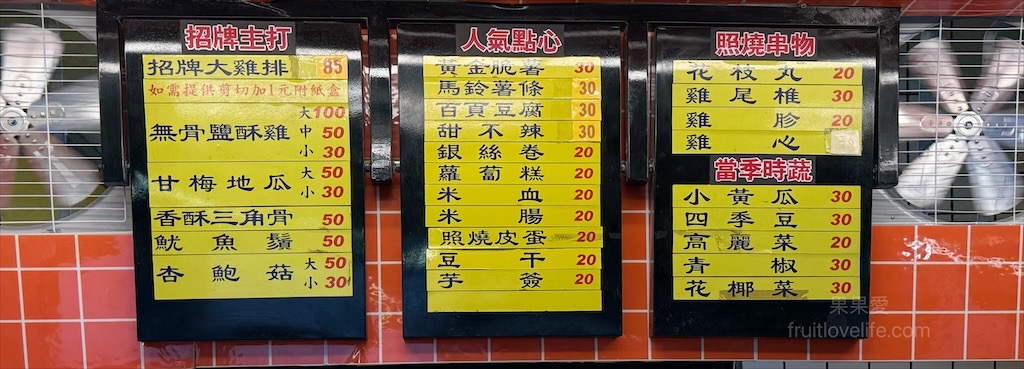 招牌主打
招牌大雞排 85
如需提供剪切加1元附紙盒
無骨鹽酥雞 大100
中 50
小 30
甘梅地瓜 大 50
小 30
香酥三角骨 50
魷魚鬚 50
杏鮑菇 大 50
小 30
人氣點心
黃金脆薯 30
馬鈴薯條 30
百頁豆腐 30
甜不辣 30
銀絲卷 20
蘿蔔糕 20
米血 20
米腸 20
照燒皮蛋 20
豆干 20
芋簽 20
照燒串物
花枝丸 20
雞尾椎 30
雞胗 20
雞心
當季時蔬
小黃瓜 30
四季豆 30
高麗菜 20
青椒 30
花椰菜 30
果果愛
fruitlovelife.com